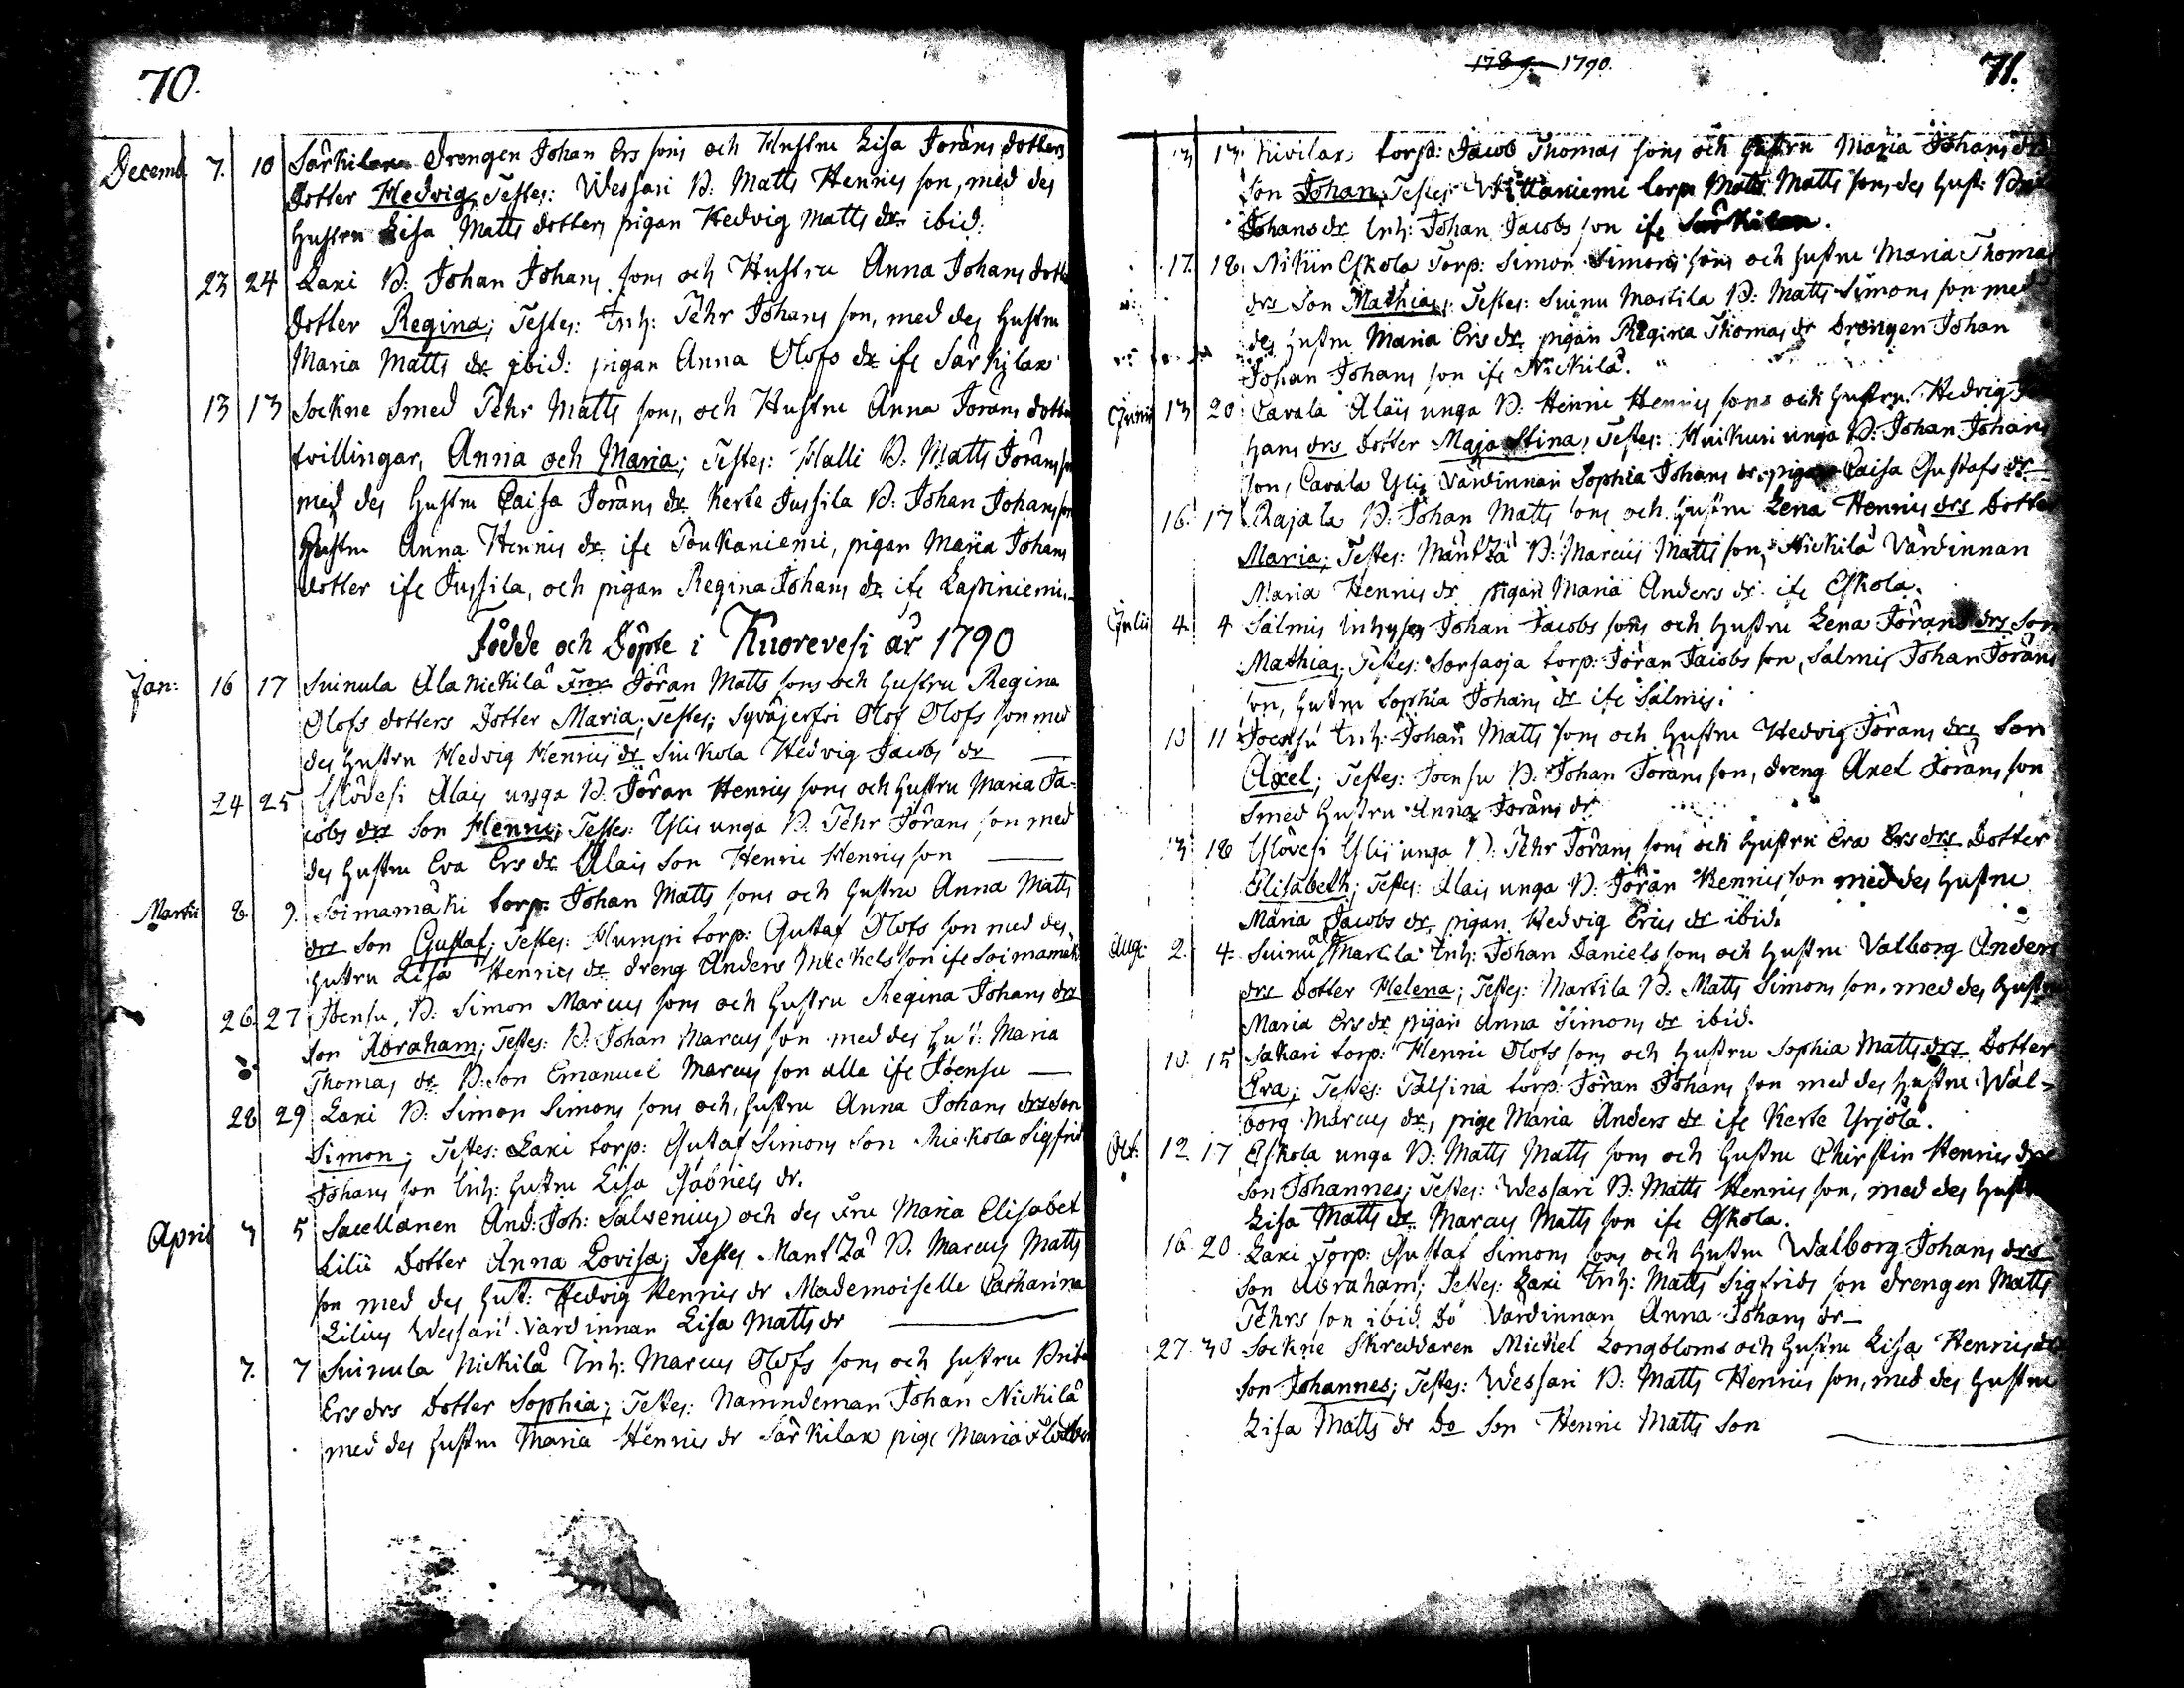 70.
Decemb. 7. 10 Särkilax Drengen Johan Ers sons och Hustru Lisa Jörans dotters
Dotter Hedvig; Testes: Wessari B: Matts Henrics son, med des
hustru Lisa Matts dotter, pigan Hedvig Matts dr ibid:
23 24 Laxi B: Johan Johans sons och Hustru Anna Johans dott
Dotter Regina; Testes: Inh: Pehr Johans son, med des hustru
Maria Matts dr ibid: pigan Anna Olofs dr ifr Särkilax
13 13 Sockne Smed Pehr Matts sons, och Hustru Anna Jörans dott
tvillingar, Anna och Maria; Testes: Halli B: Matts Jörans so
med des hustru Caisa Jörans dr Kerte Jussila B: Johan Johans so
hustru Anna Henrics dr ifr Poukaniemi, pigan Maria Johans
dotter ifr Jussila, och pigan Regina Johans dr ifr Lapiniemi.
Födde och Döpte i Kuorevesi år 1790
Jan: 16 17 Suinula Ala Nickilä Jörän Matts sons och hustru Regina
Olofs dotters Dotter Maria; Testes; Syväjerfvi Olof Olofs son med
des hustru Hedvig Henrics dr Hedvig Jacobs dr
24 25 Alais unga B. Jöran Henrics sons och hustru Maria Ja-
cobs drs Son Henric; Testes: Ylis unga B. Pehr Jörans son med
des hustru Eva Ers dr Alais Son Henric Henrics son
Martii 8. 9. Soimamäki torp: Johan Matts sons och hustru Anna Matts
drs Son Gustaf; Testes: Humpi torp: Gustaf Olofs son med des
hustru Lisa Henrics dr dreng Anders Mickels son ifr Soimamäk
26. 27 Joensu, B: Simon Marcus sons och hustru Regina Johans drs
Son Abraham; Testes: B: Johan Marcus son med des hu: Maria
Thomas dr B: Son Emanuel Marcus son alla ifr Joensu
28 29 Laxi B: Simon Simons sons och hustru Anna Johans drs Son
Simon; Testes: Laxi torp: Gustaf Simons Son Mickola Sigfrid
Johans son Inh: hustru Lisa Gabriels dr.
April 3 5 Sacellanen And: Joh: Salvenius och des Fru Maria Elisabet
Lilii Dotter Anna Lovisa; Testes Mäntzä B. Marcus Matts
son med des hust: Hedvig Henrics dr Mademoiselle Catharina
Lilius Wessari Värdinnan Lisa Matts dr
7. 7 Suinula Nickilä Inh: Marcus Olofs sons och hustru Brita
Ers drs Dotter Sophia; Testes: Nämndeman Johan Nickilä
med des hustru Maria Henrics dr Särkilax pige Maria
1789. 1790.
71.
13 13. Kivilax torp: Jacob Thomas sons och hustru Maria Johans dr
Son Johan; Testes: Wittaniemi torp: Matts Matts son, des hust:
Johans dr Inh: Johan Jacobs son ifr Särkilax.
17. 18. Eskola Torp: Simon Simons sons och hustru Maria Thoma
drs Son Mathias; Testes: Suinu Martila B: Matts Simons son med
des hustru Maria Ers dr pigan Regina Thomas dr Drengen Johan
Johan Johans son ifr Nickilä.
Junii 13 20 Cavala Alais unga B: Henric Henrics sons och hustru Hedvig Jo
hans drs Dotter Maja Stina; Testes: Huikuri unga B: Johan Johans
son, Cavala Ylis Värdinnan Sophia Johans dr pigan Caisa Gustafs dr
16. 17 Rajala B: Johan Matts sons och hustru Lena Henrics drs Dotter
Maria; Testes: Mäntzä B: Marcus Matts son, Nickilä Värdinnan
Maria Henrics dr pigan Maria Anders dr ifr Eskola.
Julii 4. 4 Salmis Inhyses Johan Jacobs sons och hustru Lena Jörans drs Son
Mathias; Testes: Sorsaoja torp: Jöran Jacobs son, Salmis Johan Jörans
son, hustru Sophia Johans dr ifr Salmis.
10 11 Joensu Inh: Johan Matts sons och hustru Hedvig Jörans drs Son
Axel; Testes: Joensu B: Johan Jörans son, dreng Axel Jörans son
Smed hustru Anna Jörans dr
13 18 Ylis unga B: Pehr Jörans sons och hustru Eva Ers drs Dotter
Elisabeth; Testes: Alais unga B: Jörän Henrics son med des hustru
Maria Jacobs dr pigan Hedvig Erics dr ibid.
Aug: 2. 4. Suinu Martila Inh: Johan Daniels sons och hustru Valborg Anders
drs Dotter Helena; Testes: Martila B: Matts Simons son, med des hustru
Maria Ers dr pigan Anna Simons dr ibid.
10. 15 Sakari torp: Henric Olofs sons och hustru Sophia Matts drs Dotter
Eva; Testes: Talsina torp: Jöran Johans son med des hustru Wal-
borg Marcus dr, pige Maria Anders dr ifr Kerte Yrjölä.
Oct: 12. 17 Eskola unga B: Matts Matts sons och hustru Chirstin Henrics drs
Son Johannes; Testes: Wessari B: Matts Henrics son, med des hustr
Lisa Matts dr Marcus Matts son ifr Eskola.
16 20 Laxi Torp: Gustaf Simons sons och hustru Walborg Johans drs
Son Abraham; Testes: Laxi Inh: Matts Sigfrids son drengen Matts
Pehrs son ibid. Do Värdinnan Anna Johans dr
27. 30 Sockne Skreddaren Mickel Longbloms och hustru Lisa Henrics dr
Son Johannes; Testes: Wessari B: Matts Henrics son, med des hustru
Lisa Matts dr Do Son Henric Matts Son